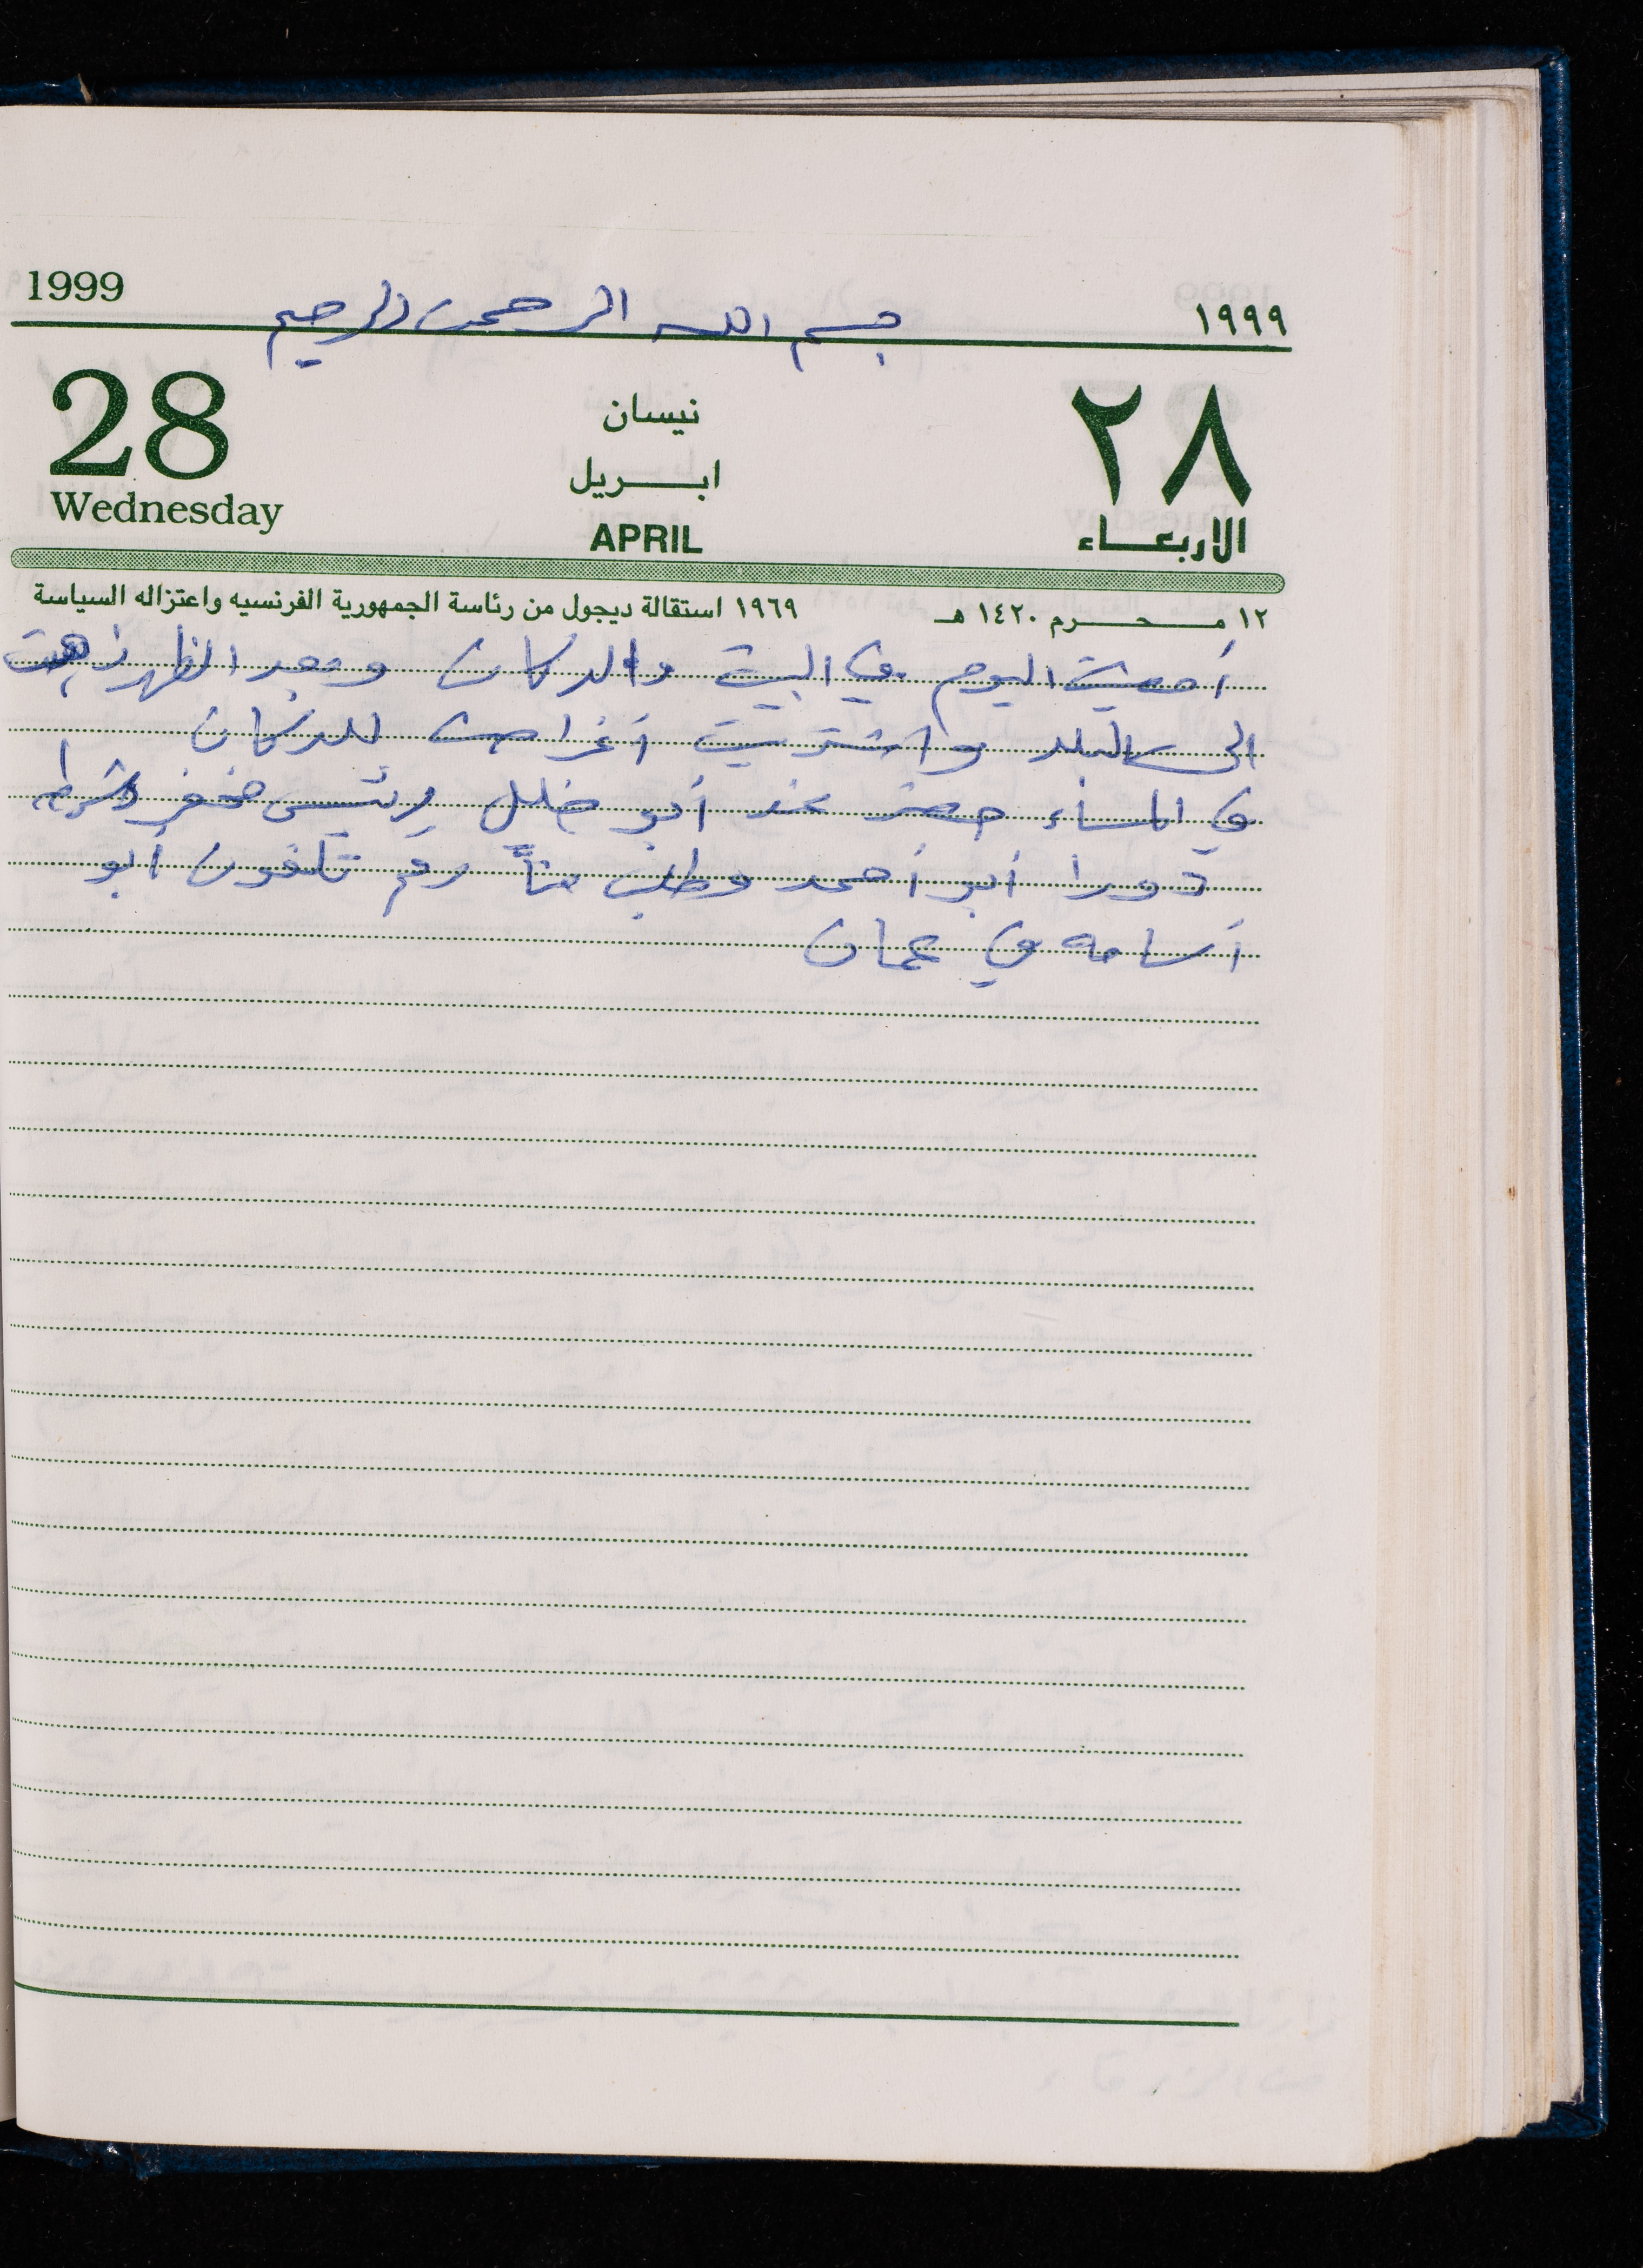 1999
١٩٩٩
بسم الله الرحمن الرحيم
28
نيسان
٢٨
ابريل
Wednesday
APRIL
الاربعاء
١٢ محرم ١٤٢٠ هـ
١٩٦٩ استقالة ديجول من رئاسة الجمهورية الفرنسيه واعتزاله السياسة
أمضيت اليوم في البيت والدكان وبعد الظهر ذهبت
الى البلد واشتريت أغراض للدكان
في المساء حضر عند أبو خليل رئيس مخفر شرطه
دورا أبو أحمد وطلب منا رقم تلفون أبو
أسامه في عمان